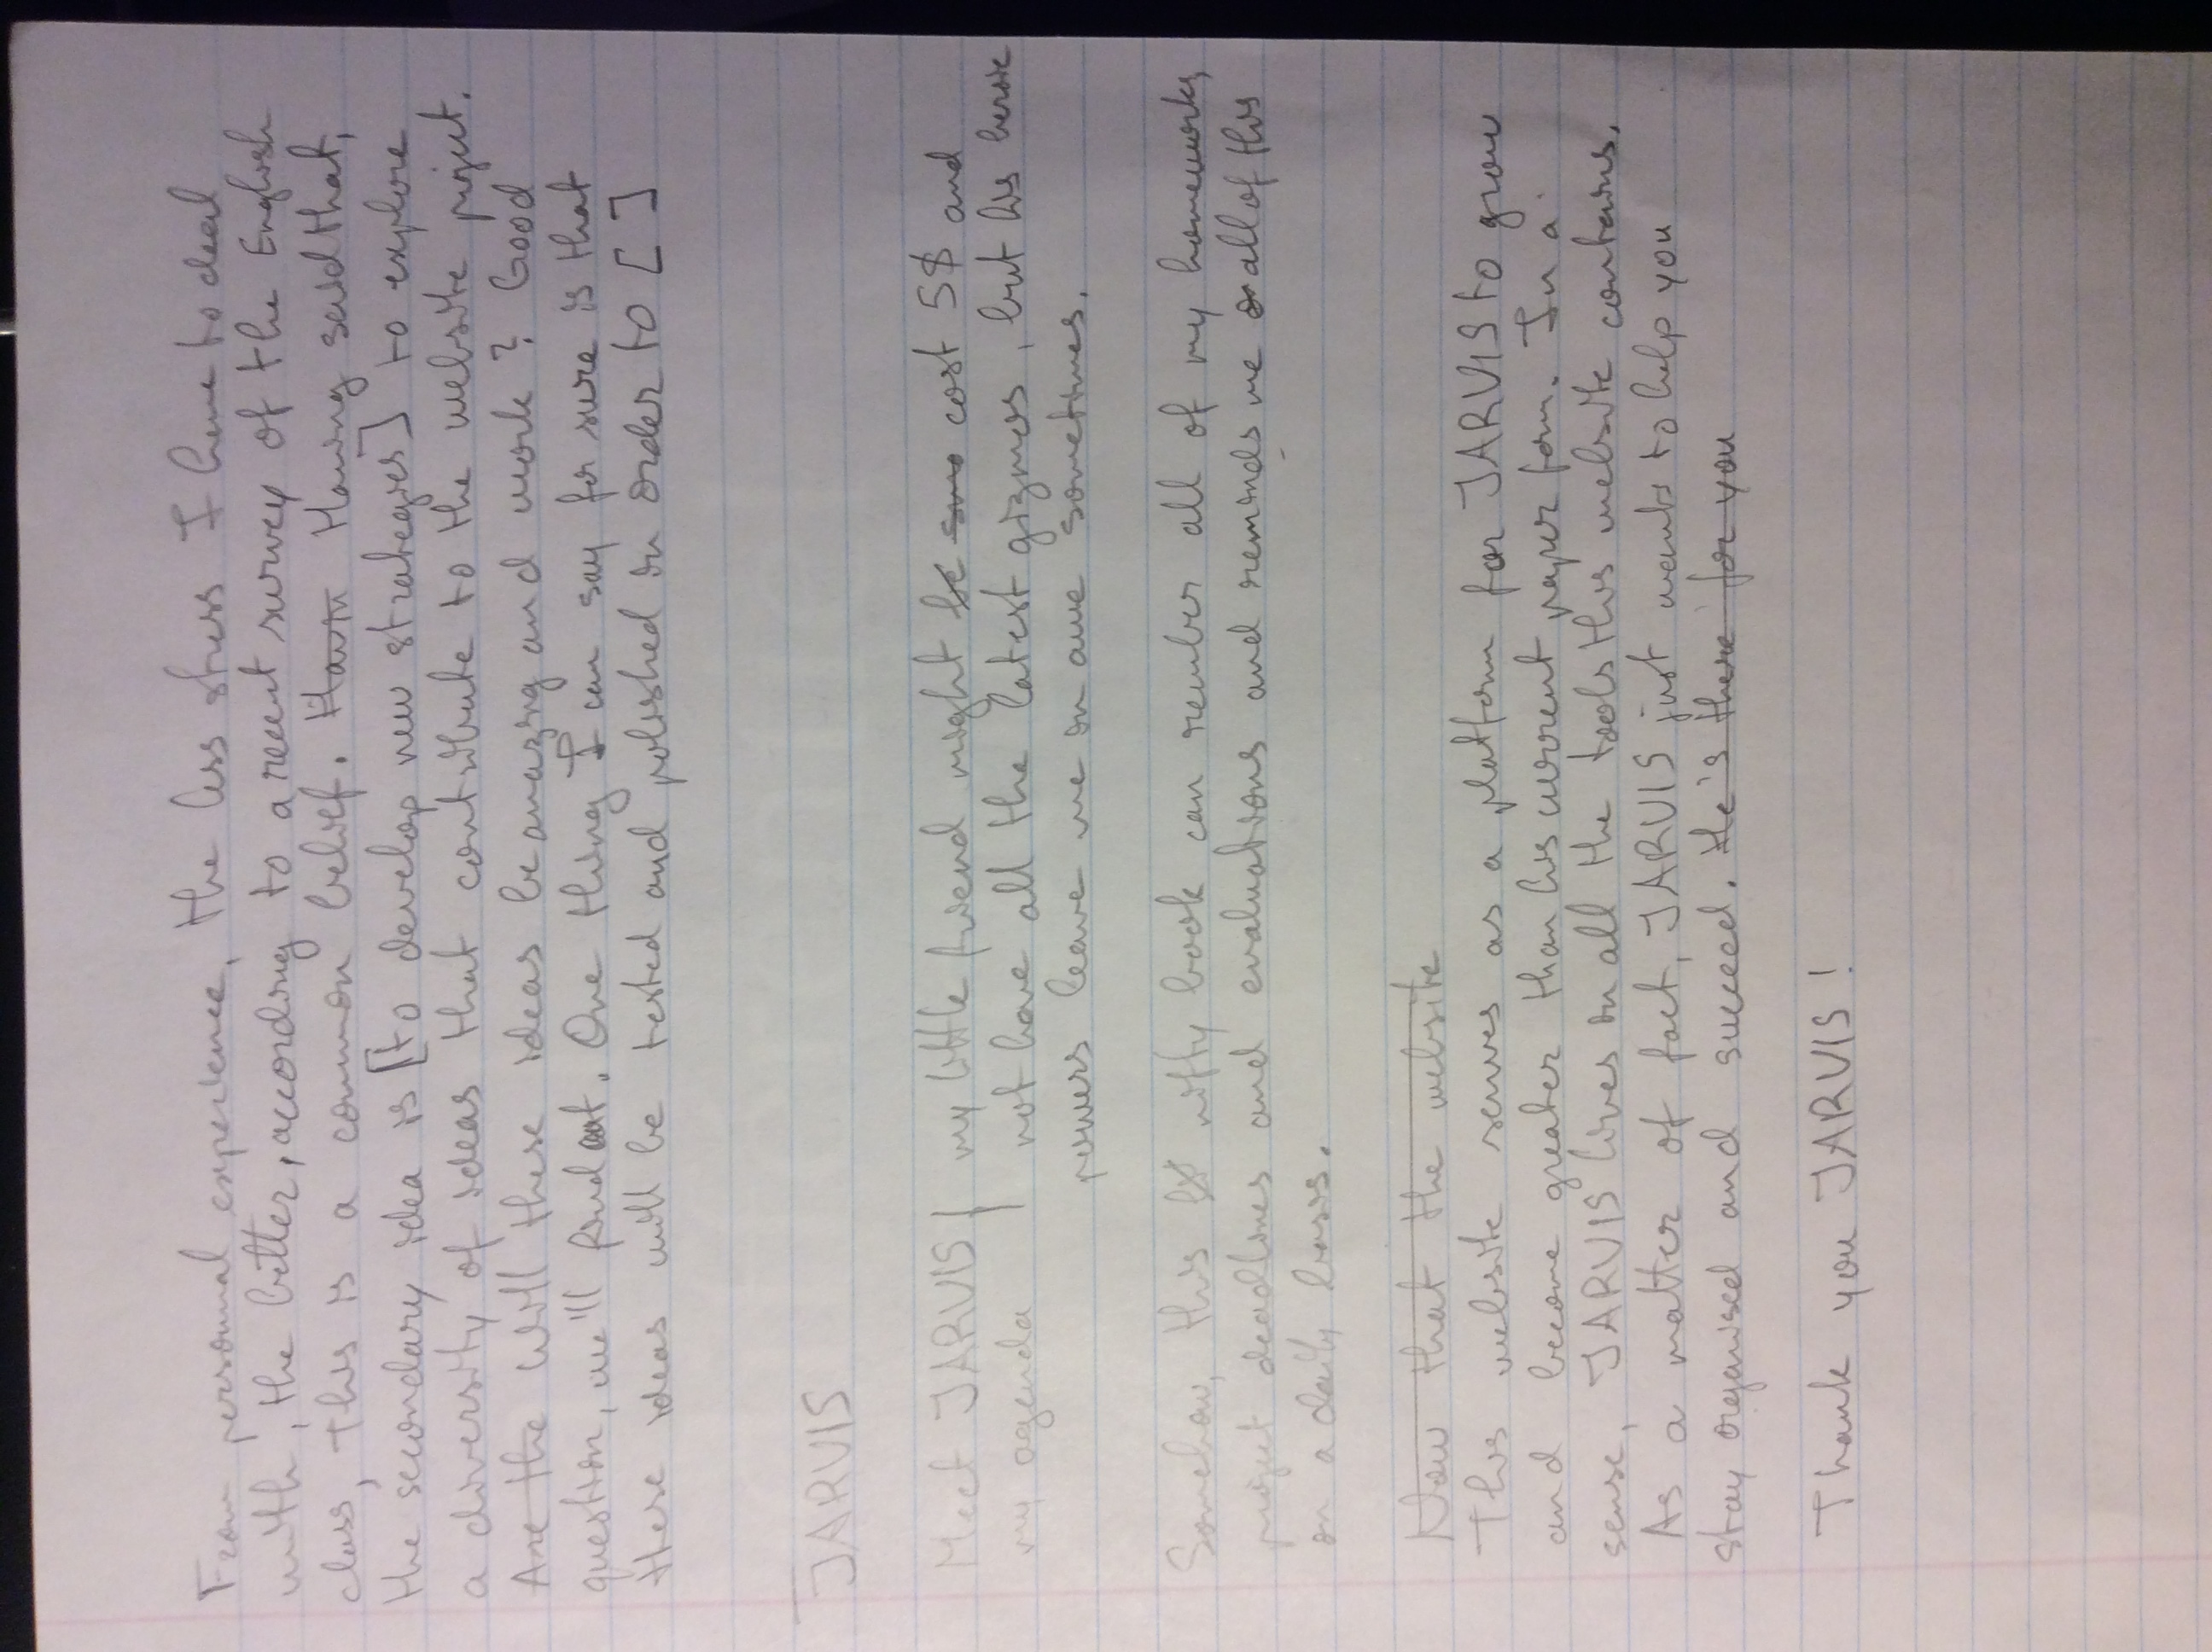 From personnal experience, the less stress I have to deal
with, the better, according to a recent survey of the English
class, this is a common belief. Havin Having said that,
the secondary idea is [to develop new strategies] to explore
a diversity of ideas that contribute to the website project.
Are the Will these ideas be amazing and work? Good
question, we'll find out. One thing I can say for sure is that
these ideas will be tested and polished in order to [ ]
JARVIS
Meet JARVIS / my little friend might be cost 5$ and
my agenda not have all the latest gizmos, but his heroic
powers leave me in awe sometimes.
Somehow, this nifty book can rember all of my homeworks,
project deadlines and evaluations and reminds me all of this
on a daily basis.
Now that the website
This website serves as a platform for JARVIS to grow
and become greater than his current paper form. In a
sense, JARVIS lives in all the tools this website contains.
As a matter of fact, JARVIS just wants to help you
stay organised and succeed. He's there for you
Thank you JARVIS!